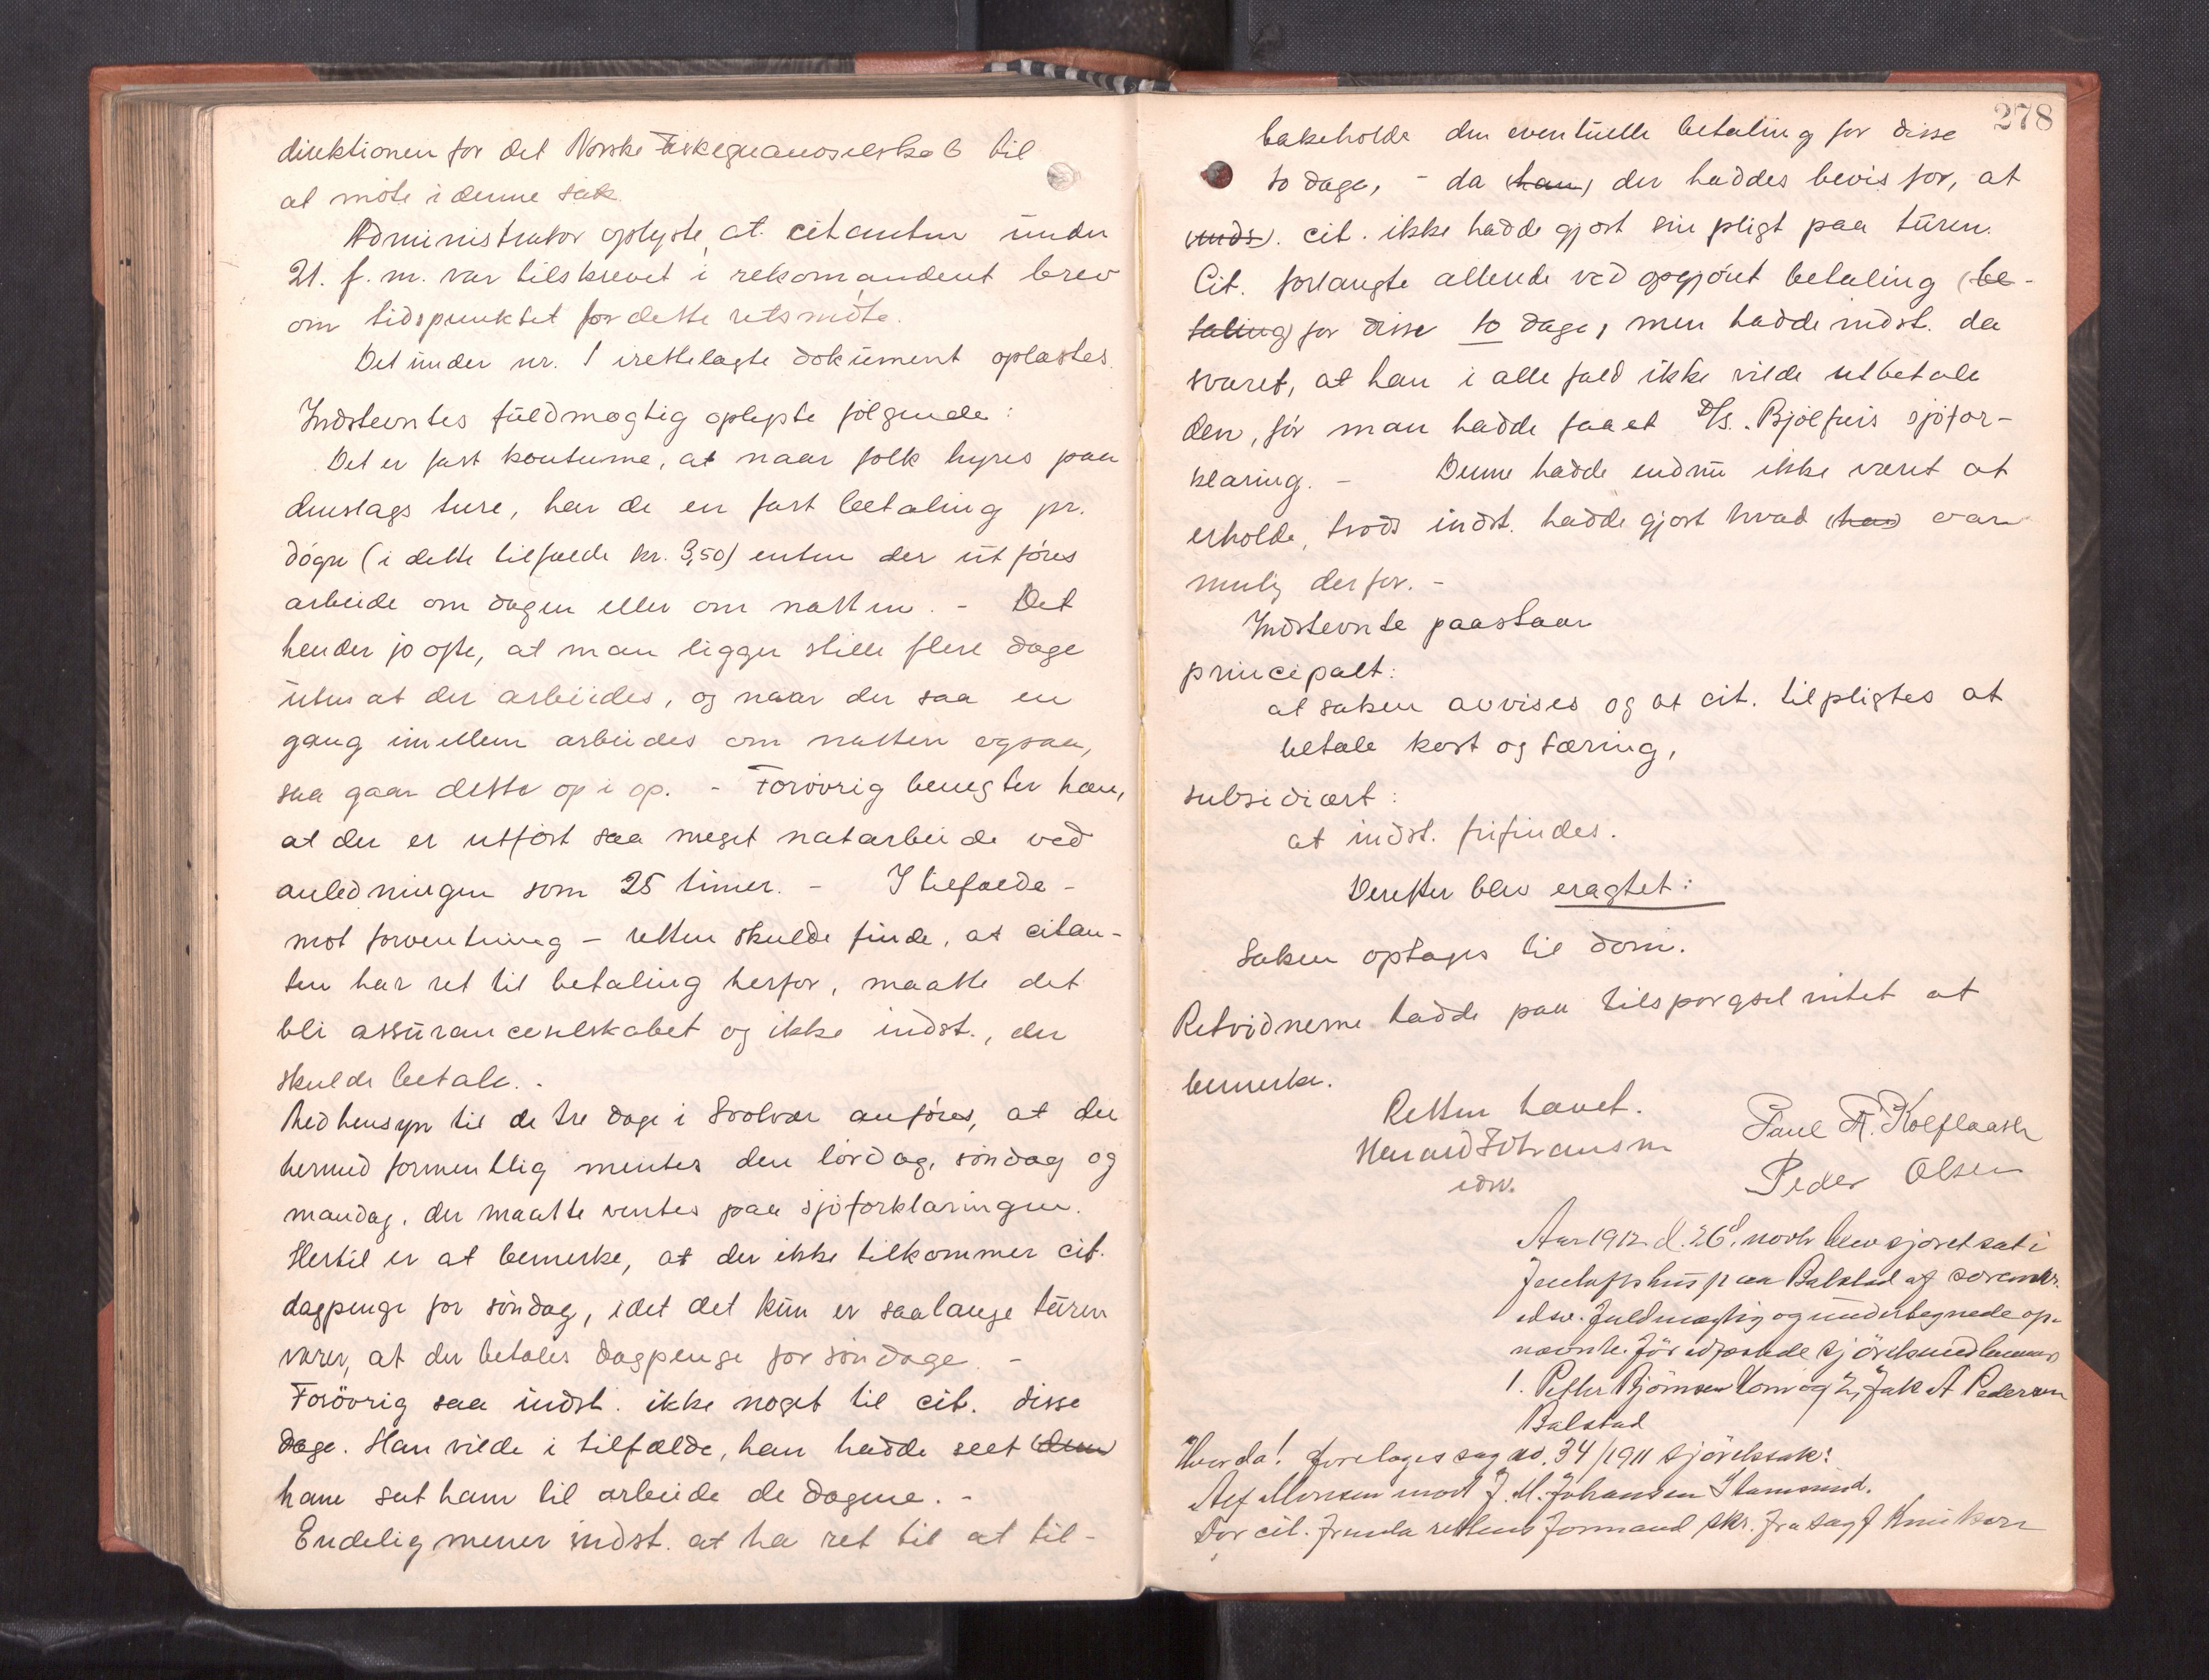 direktionen for det Norske Fiskeguanoselskab til
at møte i denne sak.
Administrator oplyste, at citanten under
21. f. m. var tilskrevet i rekomanderet brev
om tidspunktet for dette retsmøte.
Det under nr. 1 irettelagte dokument oplæstes.
Indstevntes fuldmægtig oplyste følgende:
Det er fast koutume, at naar folk hyres paa
denslags ture, har de en fast betaling pr.
døgn (i dette tilfælde kr. 3,50) enten der utføres
arbeide om dagen eller om natten. - Det
hender jo ofte, at man ligger stille flere dage
uten at der arbeides, og naar der saa en
gang imellem arbeides om natten ogsaa,
saa gaar dette op i op. - Forøvrig benegter han,
at der er utført saa meget natarbeide ved
anledningen som 25 timer. - I tilfælde -
mot forventning - retten skulde finde, at citan-
ten har ret til betaling herfor, maatte det
bli assuranceselskabet og ikke indst., der
skulde betale. -
Med hensyn til de tre dage i Svolvær anføres, at der
hermed formentlig mentes den lørdag, søndag og
mandag, der maatte ventes paa sjøforklaringen.
Hertil er at bemerke, at der ikke tilkommer cit.
dagpenge for søndag, idet det kun er saalænge turen
varer, at der betales dagpenge for søndage. -
Forøvrig saa indst. ikke noget til cit. disse
dage. Han vilde i tilfælde, han hadde seet (dem)
ham sat ham til arbeide de dagene. -
Endelig mener indst. at ha ret til at til-
278
bakeholde den eventuelle betaling for disse
10 dage, - da (han) der haddes bevis for, at
(inds). cit. ikke hadde gjort sin pligt paa turen.
Cit. forlangte allerede ved opgjøret betaling (be-
taling) for disse 10 dage, men hadde indst. da
svaret, at han i alle fald ikke vilde utbetale
den, før man hadde faaet D/s. Bjølfurs sjøfor-
klaring. - Denne hadde endnu ikke været at
erholde, trods indst. hadde gjort hvad (han) var
mulig derfor. -
Indstevnte paastaar
principalt:
at saken avvises og at cit. tilpligtes at
betale kost og tæring,
subsidiært:
at indst. frifindes.
Derefter blev eragtet:
Saken optages til dom.
Retvidnerne hadde paa tilspørgsel intet at
bemerke.
Retten hævet.
Johansen
edsv.
Paul A.
Peder Olsen
Aar 1912 d. 26d. novbr blev sjøret sat i
hus paa Balstad af sorenskr.
edsv. fuldmægtig og undertegnede op-
nævnte. før edfæstede sjøretsmedlemmer
1. Petter Bjørnsen og 2, Jak A Pedersen
Balstad
Hvorda! foretoges sag no. 34/1911 sjøretssak:
Alf Monsen mod J. M. Johansen Stamsund.
For cit. fremla rettens formand skr. fra sagf